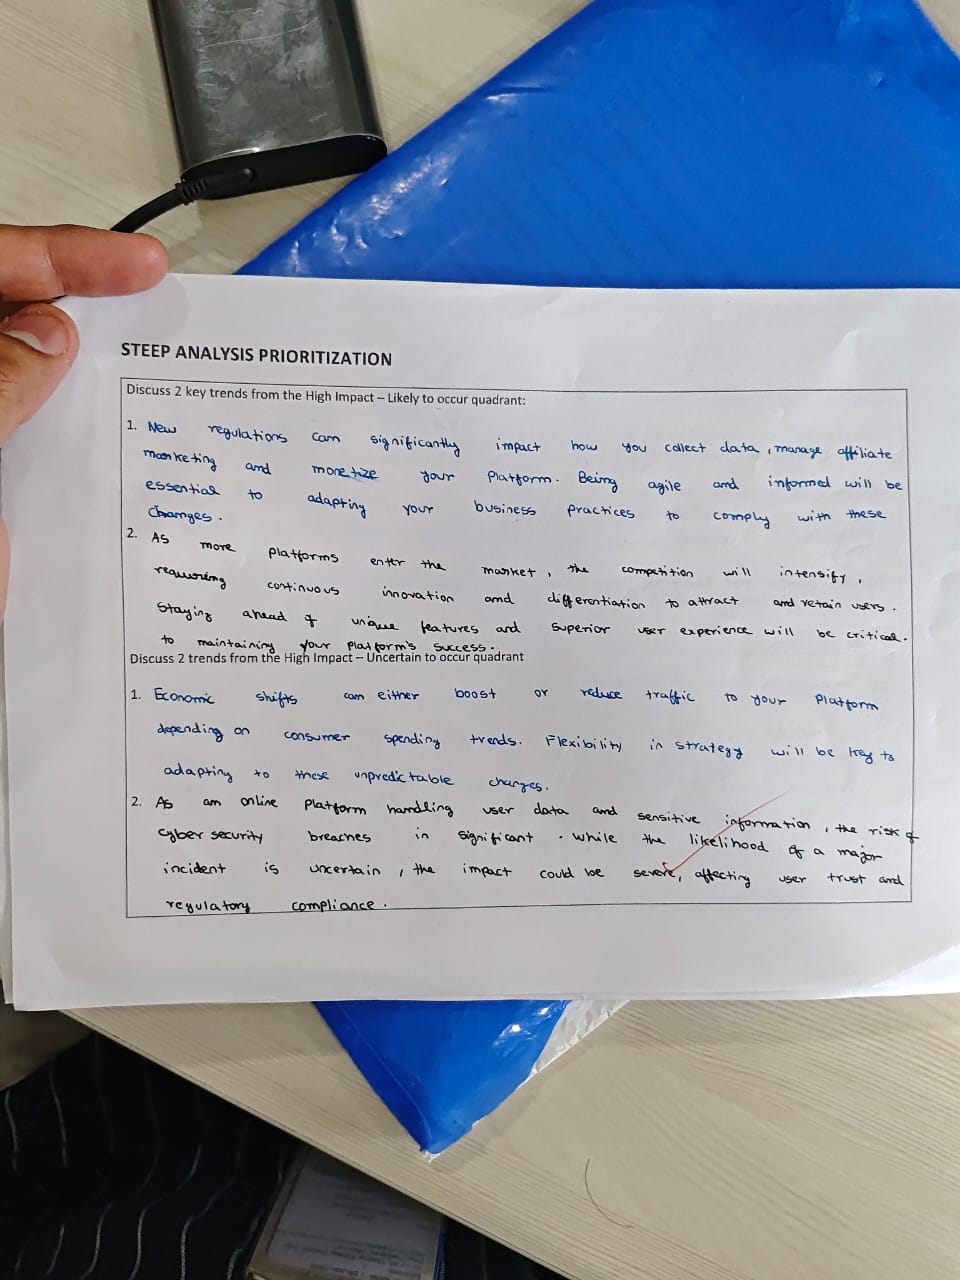 STEEP ANALYSIS PRIORITIZATION
Discuss 2 key trends from the High Impact – Likely to occur quadrant:
1. New regulations can significantly impact how you collect data, manage affiliate
marketing and monetize your Platform. Being agile and informed will be
essential to adapting your business practices to comply with these
changes.
2. As more platforms enter the market, the competition will intensify,
requiring continuous innovation and differentiation to attract and retain users.
Staying ahead of unique features and superior user experience will be critical.
to maintaining your platform's success.
Discuss 2 trends from the High Impact – Uncertain to occur quadrant
1. Economic shifts can either boost or reduce traffic to your Platform
depending on consumer spending trends. Flexibility in strategy will be key to
adapting to these unpredictable changes.
2. As an online Platform handling user data and sensitive information, the risk of
cyber security breaches in significant. while the likelihood of a major
incident is uncertain, the impact could be severe, affecting user trust and
regulatory compliance.